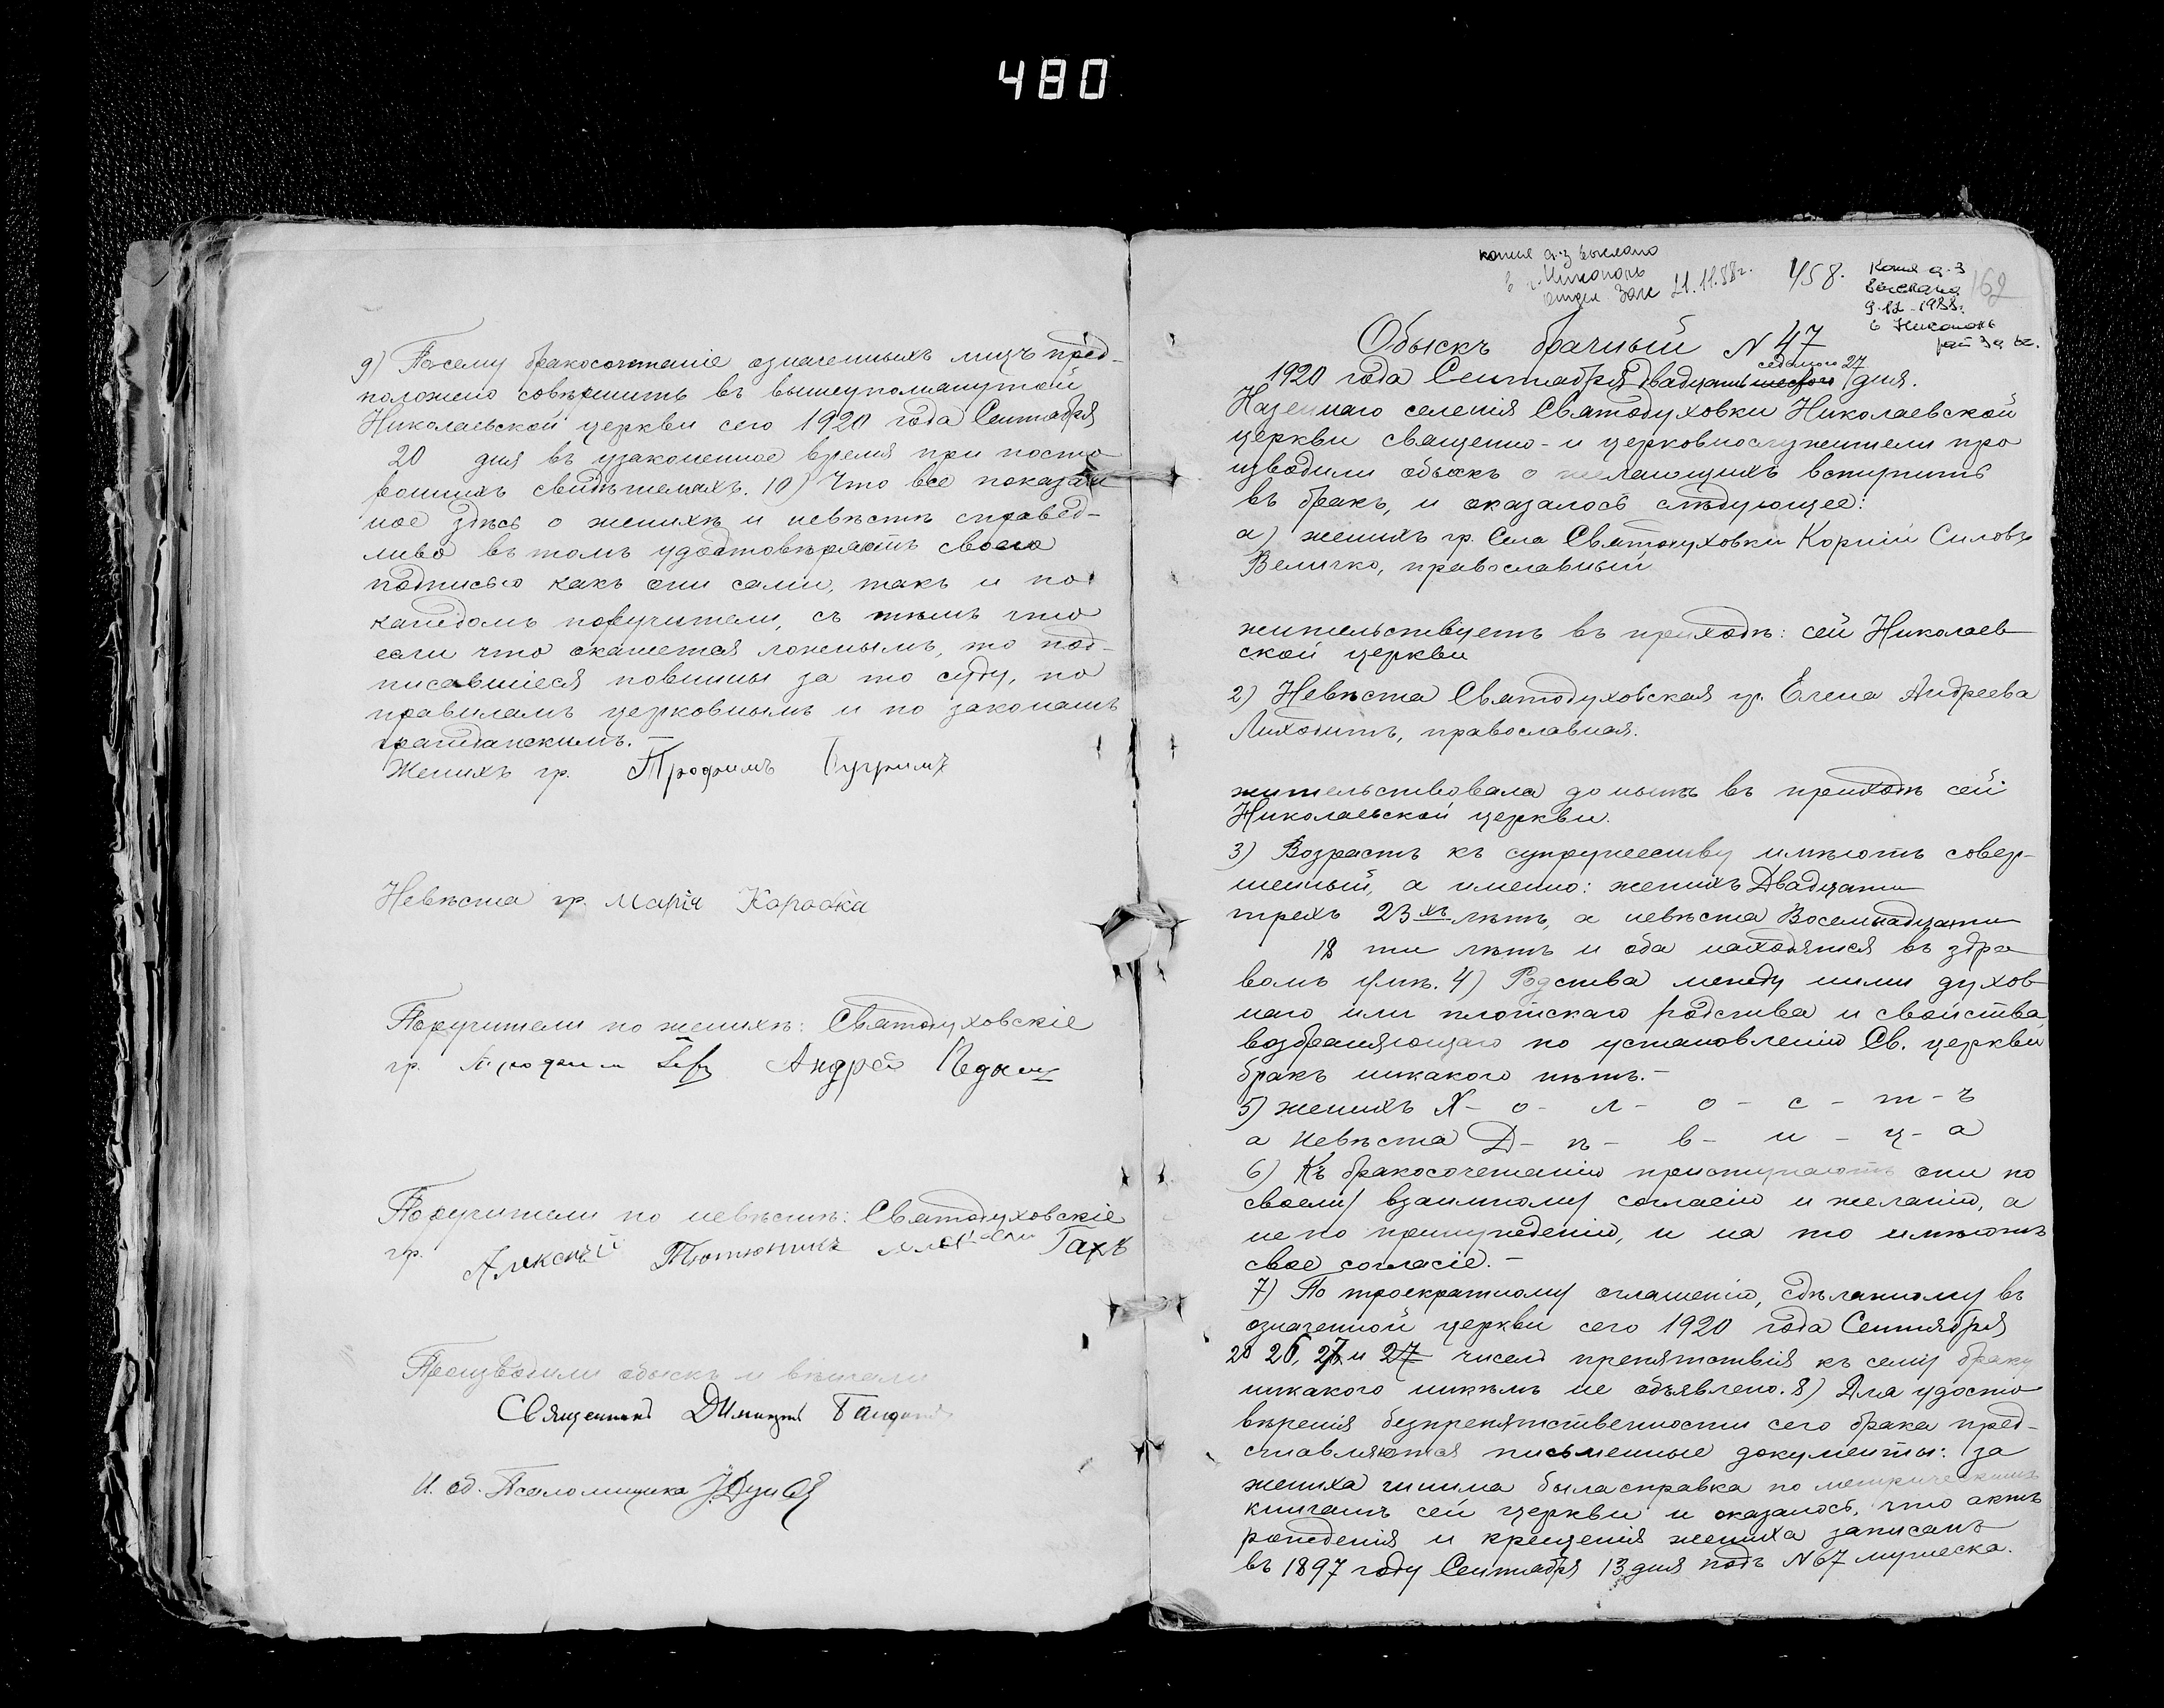 480
9) Посему бракосочетаніе означенныхъ лицъ пред-
положено совѣршить въ вышеупомянутой
Николаевской церкви сего 1920 года Сентября
20 дня въ узаконенное время при посто
ронихъ свидѣтеляхъ. 10) Что все показан
ное здѣсь о женихѣ и невѣстѣ справед-
ливо въ томъ удостовѣряютъ своею
подписью какъ они сами, такъ и по
каждомъ поручители, съ тѣмъ что
если что окажется ложнымъ, то под-
писавшіеся повинны за то суду, по
правиламъ церковнымъ и по законамъ
гражданскимъ.
Женихъ гр. Трофимъ
Невѣста гр. Марія Коробка
Поручители по женихѣ: Святодуховскіе
гр. Андрей
Поручители по невѣстѣ: Святодуховскіе
гр. Алексѣй Тютюникъ Гахъ
Производили обыскъ и вѣнчали
Священникъ Димитрій
И. об. Псаломщика
копия а.з выслана
в г. Никополь
отдел Загс 21.11.88г.
458.
Копия а.з
выслана
9.12.1988г.
в Никополь
162
Обыскъ брачный N 47
седьмого 27
1920 года Сентября двадцать шестого дня.
Казеннаго селенія Святодуховки Николаевской
церкви священно- и церковнослужители про
изводили обыскъ о желающихъ вступить
въ бракъ, и оказалось слѣдующее:
а) женихъ гр. Села Святодуховки Корній Силовъ
Величко, православный
жительствуетъ въ приходѣ: сей Николаев
ской церкви
2) Невѣста Святодуховская гр. Елена Андреева
Лиходитъ, православная.
жительствовала до нынѣ въ приходѣ сей
Николаевской церкви.
3) Возрастъ къ супружеству имѣютъ совер-
шенный, а именно: женихъ Двадцати
трехъ 23хъ лѣтъ, а невѣста Восемнадцати
18 ти лѣтъ и оба находятся въ здра
вомъ умѣ. 4) Родства между ними духов
наго или плотскаго родства и свойства
возбраняющаго по установленію Св. церкви
бракъ никакого нѣтъ.-
5) женихъ Х- о- л- о- с- т- ъ
а невѣста Д- ѣ- в- и- ц- а
6) Къ бракосочетанію приступаютъ они по
своему взаимному согласію и желанію, а
не по принужденію, и на то имѣютъ
свое согласіе.-
7) По троекратному оглашенію, сдѣланному въ
означенной церкви сего 1920 года Сентября
20 26, 27 и 27 чиселъ препятствія къ сему браку
никакого никѣмъ не объявлено. 8) Для удосто
вѣренія безпрепятственности сего брака пред-
ставляются письменные документы: за
жениха чинима была справка по метрическимъ
книгамъ сей церкви и оказалось, что актъ
рожденія и крещенія жениха записанъ
въ 1897 году Сентября 13 дня подъ N 67 мужеска.